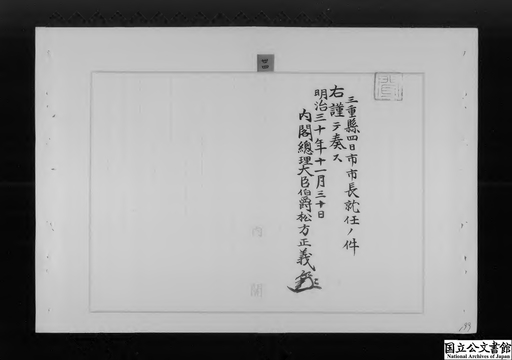 三重縣四日市市長就任ノ件
右謹テ奏ス
明治三十年十一月三十日
內閣總理大臣伯爵松方正義
內閣
199
国立公文書館
National Archives of Japan